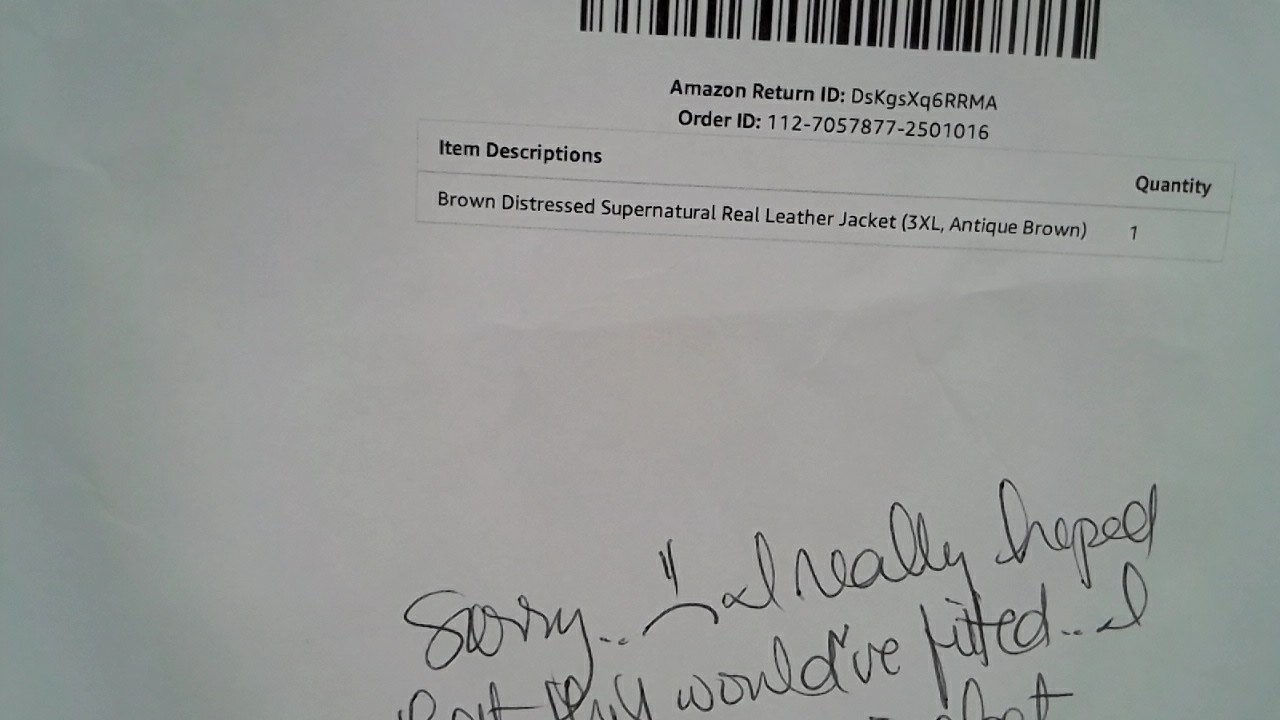 Amazon Return ID: DsKgsXq6RRMA
Order ID: 112-7057877-2501016
Item Descriptions Quantity
Brown Distressed Supernatural Real Leather Jacket (3XL, Antique Brown) 1
Sorry.. I really hoped
would've fitted.. I